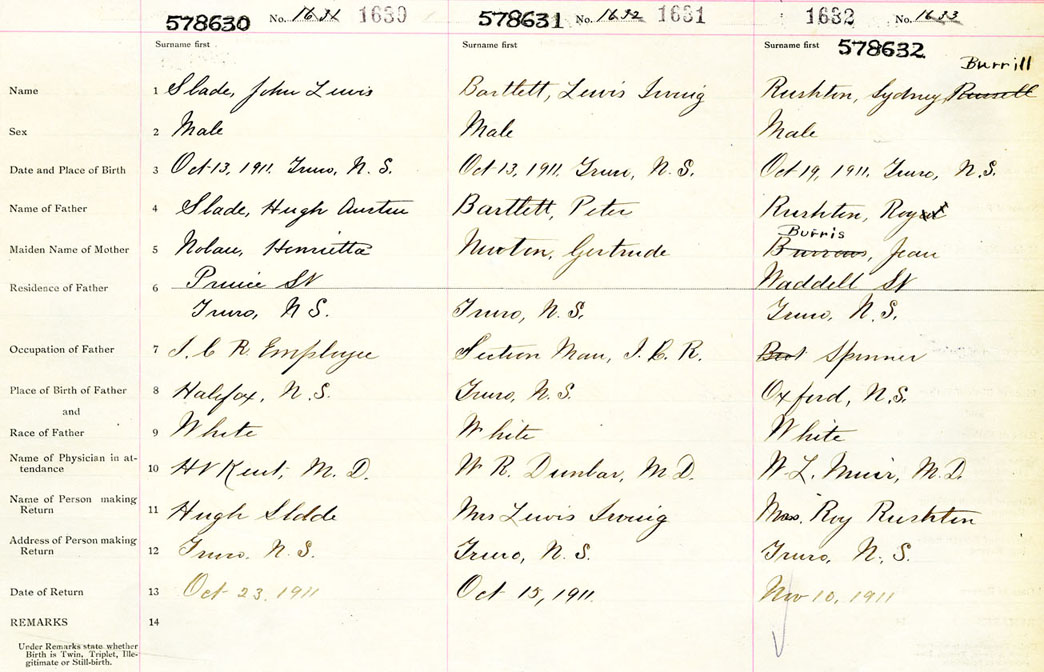 578630 No. 1631 1630
578631 No. 1632 1631
1632 No. 1633
Surname first
Surname first
Surname first 578632
Burrill
Name 1 Slade, John Lewis
Bartlett, Lewis Irving
Rushton, Sydney, Russell
Sex 2 Male
Male
Male
Date and Place of Birth 3 Oct 13, 1911. Truro, N. S.
Oct 13, 1911. Truro, N. S.
Oct 19, 1911. Truro, N. S.
Name of Father 4 Slade, Hugh Austin
Bartlett, Peter
Rushton, Roy
Burris
Maiden Name of Mother 5 Nolan, Henrietta
Newton, Gertrude
Burrows, Jean
Residence of Father 6 Prince St
Waddell St
Truro, N S.
Truro, N. S.
Truro, N. S.
Occupation of Father 7 I. C R. Employee
Section Man, I. C. R.
Spinner
Place of Birth of Father 8 Halifax, N. S.
Truro, N. S.
Oxford, N. S.
and
Race of Father 9 White
White
White
Name of Physician in at-
tendance 10 H V Kent, M. D.
W. R. Dunbar, M. D.
W. L. Muir, M. D.
Name of Person making
Return 11 Hugh Slade
Mrs Lewis Irving
Roy Rushton
Address of Person making
Return 12 Truro. N. S.
Truro, N. S.
Truro, N. S.
Date of Return 13 Oct 23, 1911
Oct 15, 1911.
Nov 10, 1911
REMARKS 14
Under Remarks state whether
Birth is Twin, Triplet, Ille-
gitimate or Still-birth.